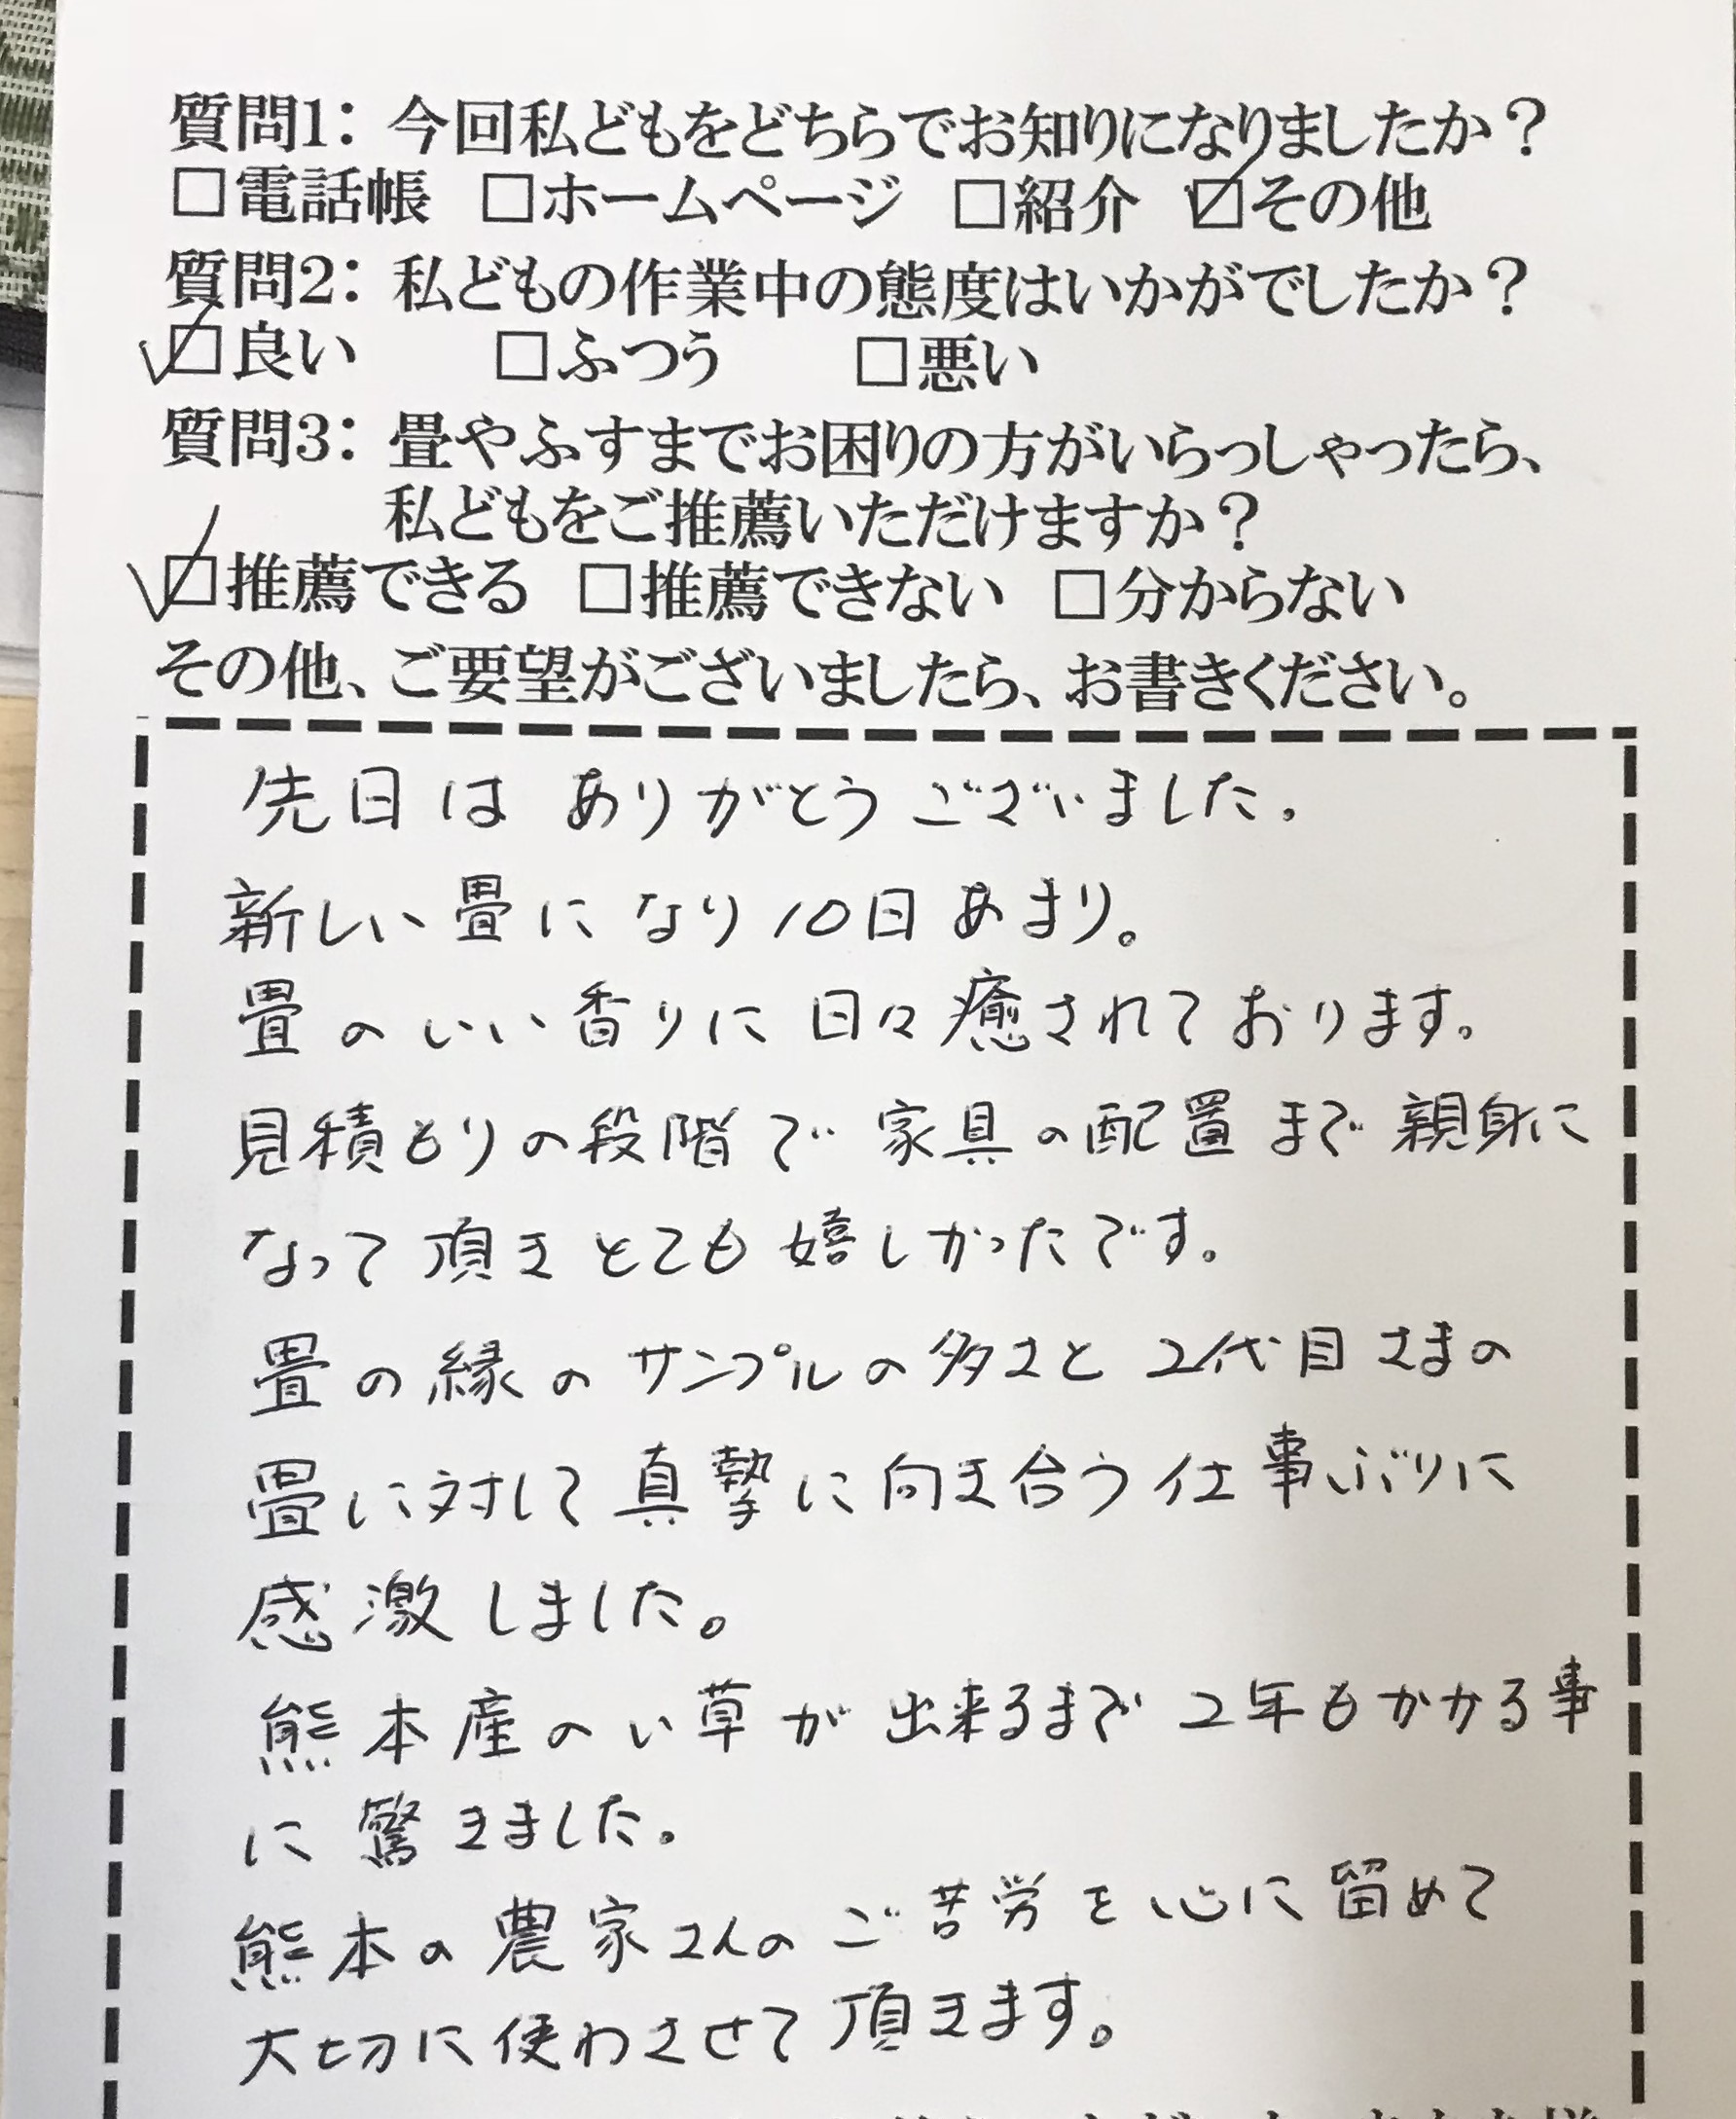 質問1：今回私どもをどちらでお知りになりましたか？
□電話帳 □ホームページ □紹介 ☑その他
質問2：私どもの作業中の態度はいかがでしたか？
☑良い □ふつう □悪い
質問3：畳やふすまでお困りの方がいらっしゃったら、
私どもをご推薦いただけますか？
☑推薦できる □推薦できない □分からない
その他、ご要望がございましたら、お書きください。
先日は ありがとうございました。
新しい畳になり10日あまり。
畳のいい香りに日々癒されております。
見積もりの段階で家具の配置まで親身に
なって頂きとても嬉しかったです。
畳の縁のサンプルの多さと2代目さまの
畳に対して真摯に向き合う仕事ぶりに
感激しました。
熊本産のい草が出来るまで2年もかかる事
に驚きました。
熊本の農家さんのご苦労を心に留めて
大切に使わさせて頂きます。